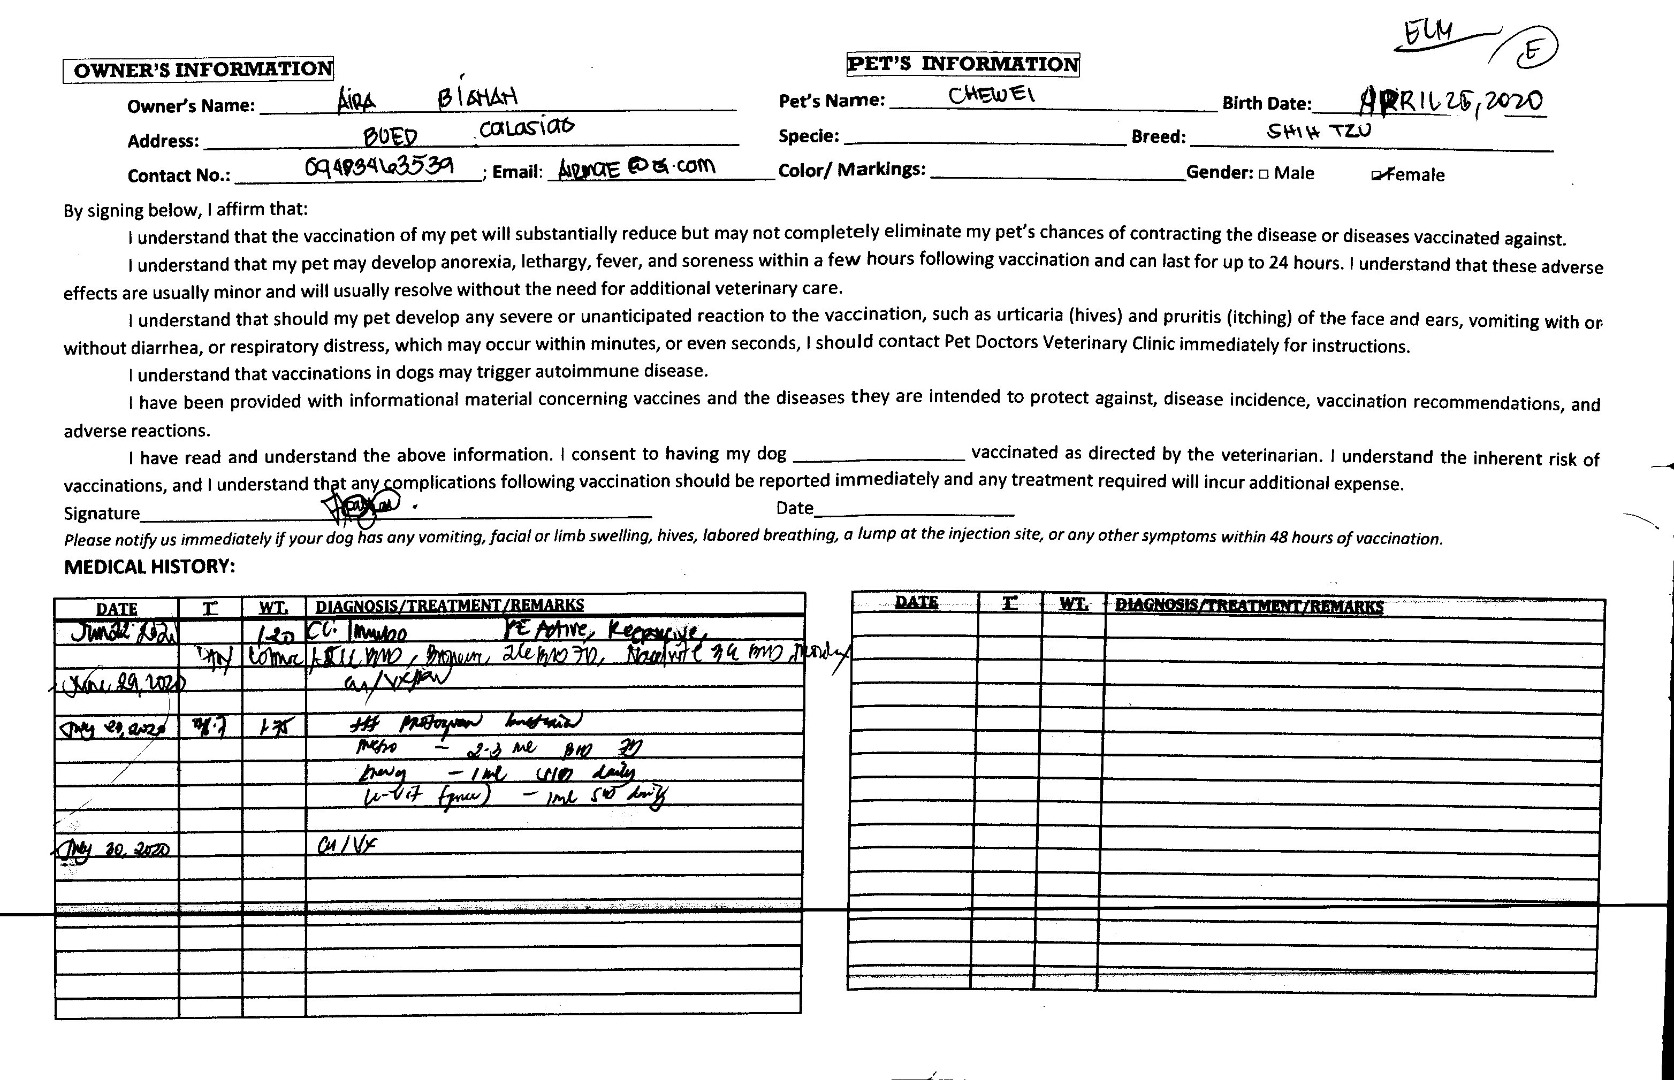 ELM E
OWNER'S INFORMATION PET'S INFORMATION
Owner's Name: AIRA BISHAH Pet's Name: CHEWEI Birth Date: APRIL 25, 2020
Address: BUED CALASIAO Specie: Breed: SHIH TZU
Contact No.: 09483463539 ; Email: Color/ Markings: Gender: □ Male ☑ Female
By signing below, I affirm that:
I understand that the vaccination of my pet will substantially reduce but may not completely eliminate my pet's chances of contracting the disease or diseases vaccinated against.
I understand that my pet may develop anorexia, lethargy, fever, and soreness within a few hours following vaccination and can last for up to 24 hours. I understand that these adverse
effects are usually minor and will usually resolve without the need for additional veterinary care.
I understand that should my pet develop any severe or unanticipated reaction to the vaccination, such as urticaria (hives) and pruritis (itching) of the face and ears, vomiting with or
without diarrhea, or respiratory distress, which may occur within minutes, or even seconds, I should contact Pet Doctors Veterinary Clinic immediately for instructions.
I understand that vaccinations in dogs may trigger autoimmune disease.
I have been provided with informational material concerning vaccines and the diseases they are intended to protect against, disease incidence, vaccination recommendations, and
adverse reactions.
I have read and understand the above information. I consent to having my dog vaccinated as directed by the veterinarian. I understand the inherent risk of
vaccinations, and I understand that any complications following vaccination should be reported immediately and any treatment required will incur additional expense.
Signature Date
Please notify us immediately if your dog has any vomiting, facial or limb swelling, hives, labored breathing, a lump at the injection site, or any other symptoms within 48 hours of vaccination.
MEDICAL HISTORY:
DATE T WT. DIAGNOSIS/TREATMENT/REMARKS DATE T WT. DIAGNOSIS/TREATMENT/REMARKS
1.20 CC: PE Active, Responsive,
BID
June 29, 2020
July 29, 2020 1.75
metro - 2.3 ml BID 7D
- 1 ml daily
- 1ml SID daily
July 30, 2020 /VX